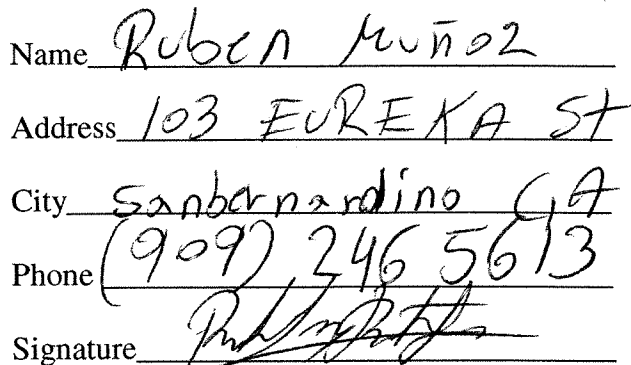 Name Ruben Muñoz
Address 103 EUREKA St
City Sanbernardino CA
Phone (909) 246 5613
Signature